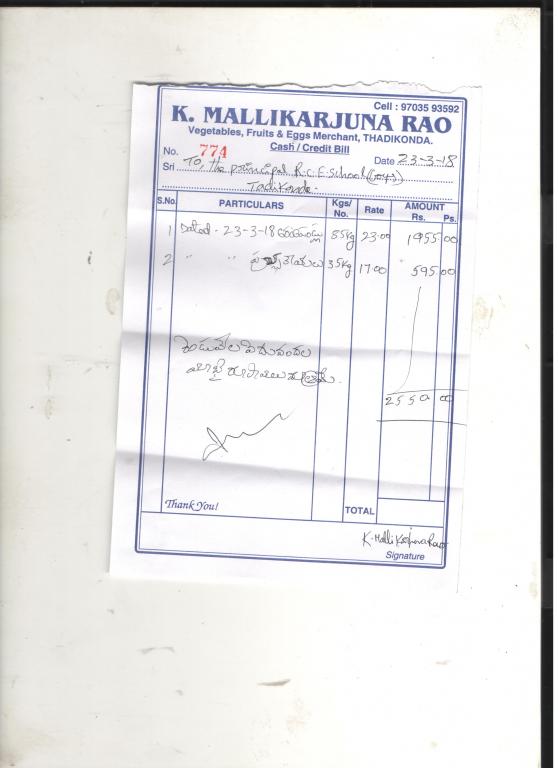 Cell : 97035 93592
K. MALLIKARJUNA RAO
Vegetables, Fruits & Eggs Merchant, THADIKONDA.
Cash / Credit Bill
No. 774
Date 23-3-18
Sri To, the principal R.C.E. School
Tadikonda.
S.No. PARTICULARS Kgs/ No. Rate AMOUNT Rs. Ps.
1 Dated - 23-3-18 85kg 23.00 1955 00
2 " " 35kg 17.00 595 00
రెండువేల
యాభై రూపాయలు మాత్రమే.
2550 00
Thank You!
TOTAL
K. Malli Karjuna Rao
Signature